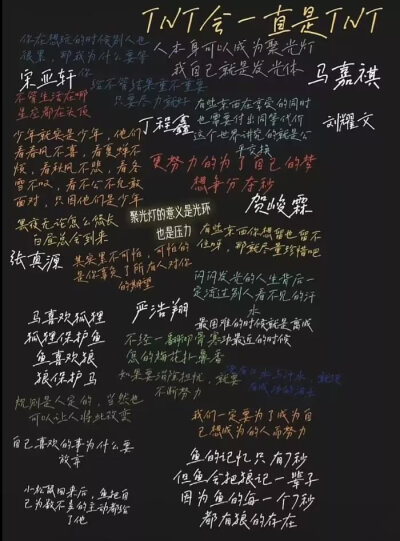 TNT会一直是TNT
你在想玩的时候别人也
很累，那我为什么要管
你
人本身可以成为聚光灯
我自己就是发光体
宋亚轩
马嘉祺
给不管结果重不重要
只要尽力就好
不管生活在哪
星辰都在头顶
丁程鑫
有些东西在享受的同时
也需要付出同等代价
这个世界讲究的就是公
平交换
刘耀文
少年就应是少年，他们
看春风不喜，看夏蝉不
烦，看秋风不悲，看冬
雪不叹，看不公不允敢
面对，只因他们是少年
更努力的为了自己的梦
想争分夺秒
贺峻霖
黑夜无论怎么悠长
白昼总会到来
聚光灯的意义是光环
也是压力
有些东西你想留也留不
住呀，那就尽量珍惜吧
张真源
其实黑不可怕，可怕的
是你辜负了所有人对你
的期望
闪闪发光的人生背后一
定流过别人看不见的汗
水
严浩翔
最困难的时候就是离成
功最近的时候
马喜欢狐狸
狐狸保护鱼
鱼喜欢狼
狼保护马
不经一翻彻骨寒
怎的梅花扑鼻香
如果要消除担忧，就要
不断努力
规则是人定的，当然也
可以让人将此改变
我们一定要为了成为自
己想成为的人而努力
自己喜欢的事为什么要
放弃
鱼的记忆只有7秒
但鱼会把狼记一辈子
因为鱼的每一个7秒
都有狼的存在
小松鼠回来后，鱼把自
己为数不多的主动都给
了他